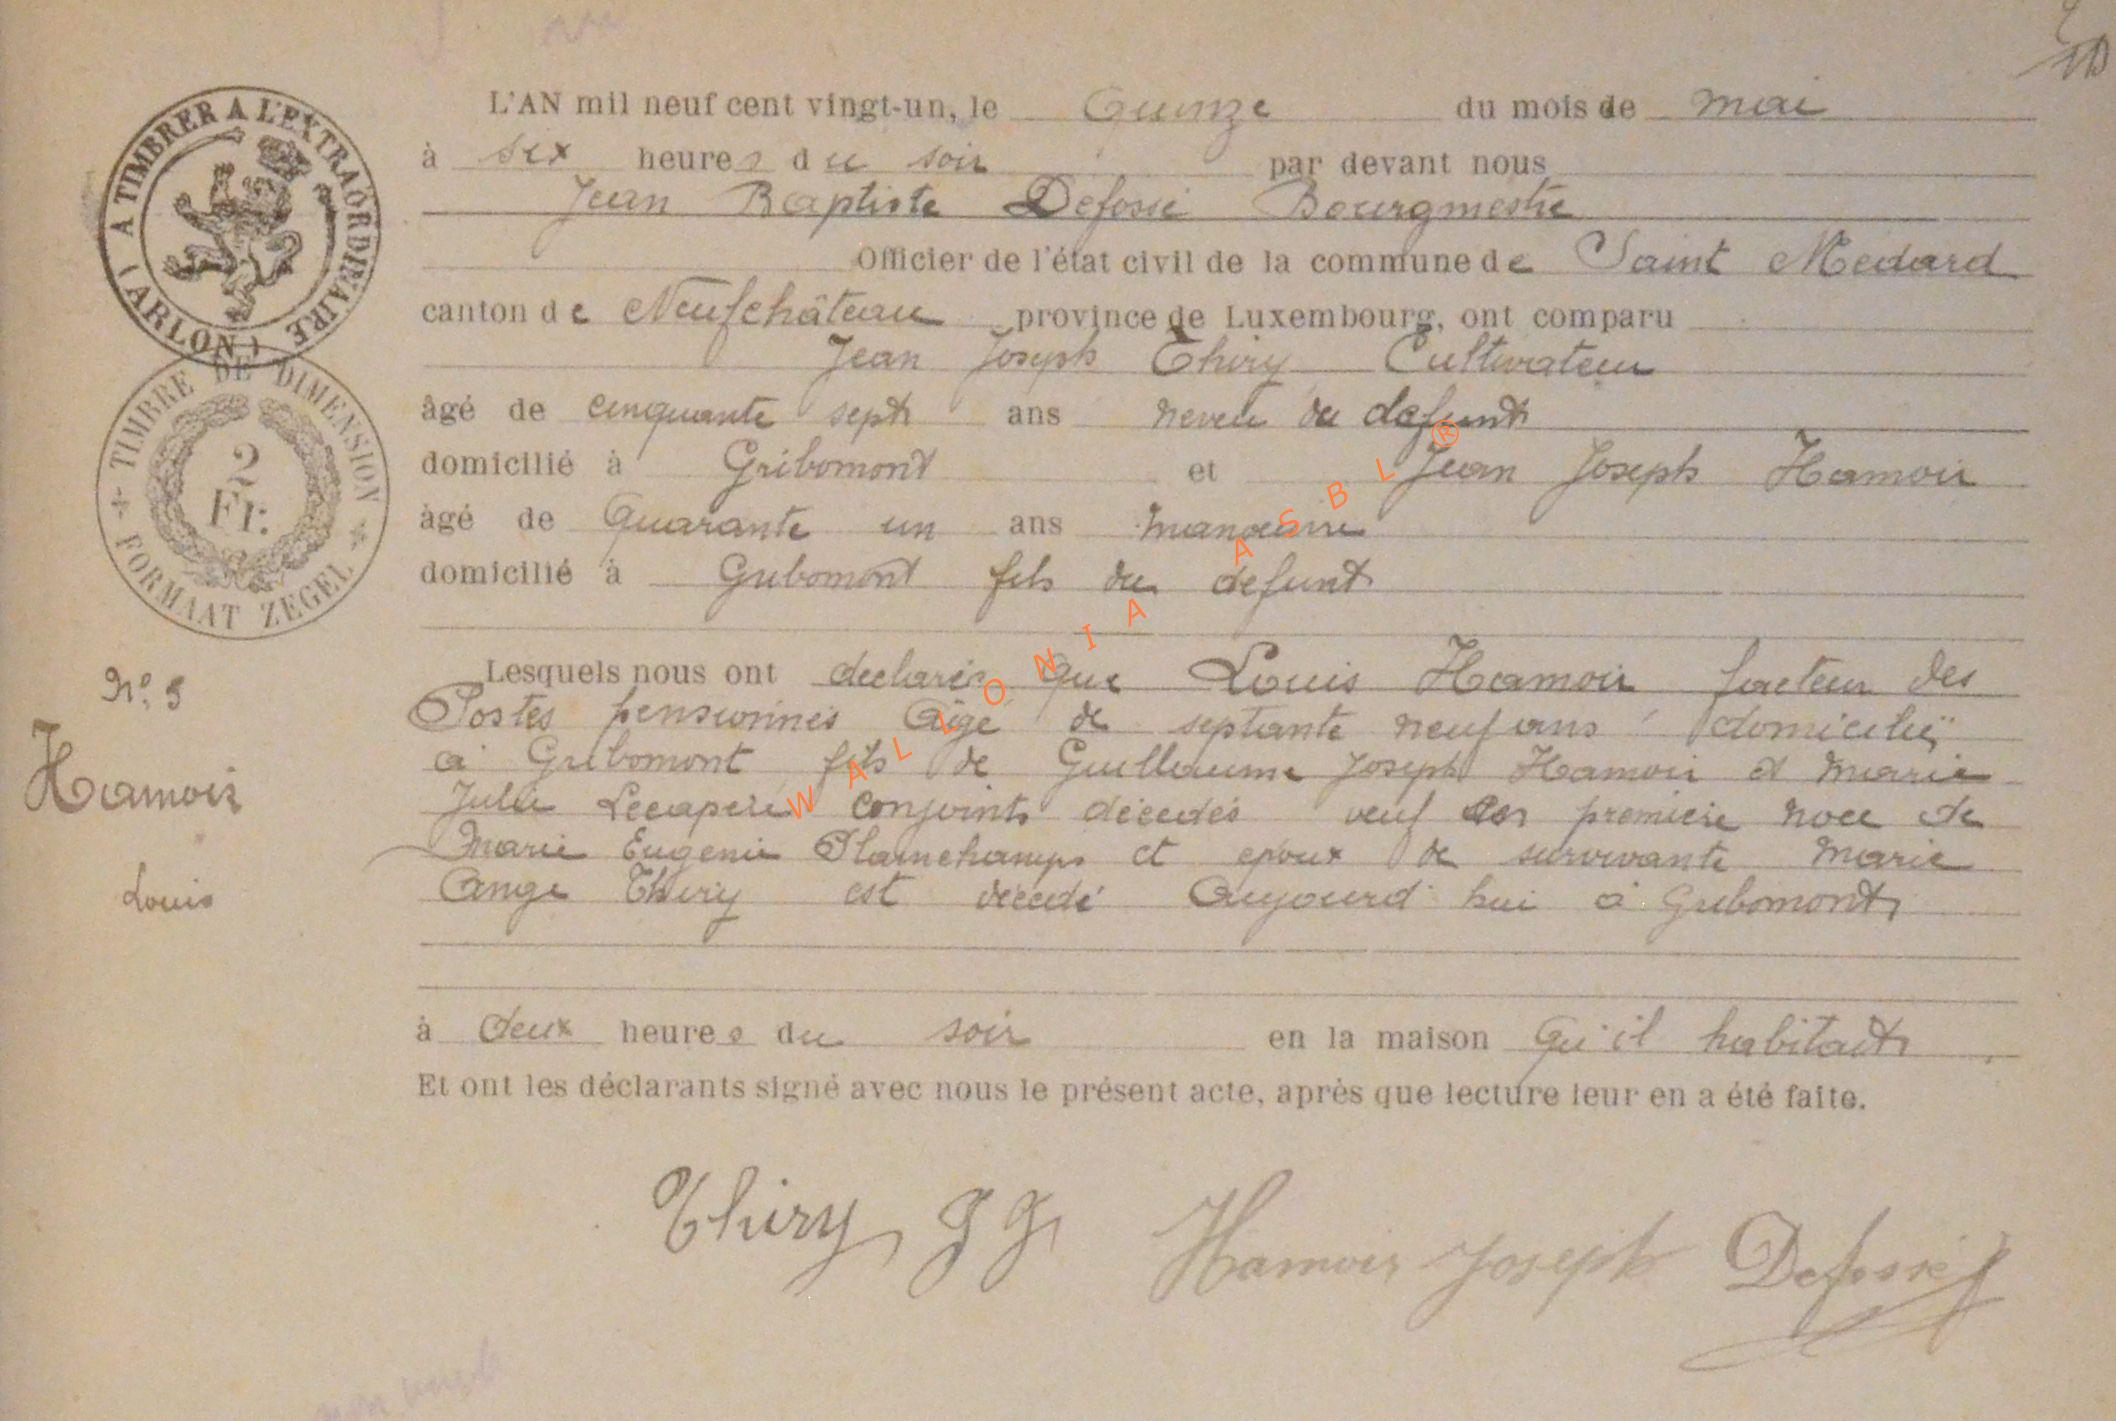 A TIMBRER A L'EXTRAORDINAIRE (ARLON)
TIMBRE DE DIMENSION
2
Fr.
FORMAAT ZEGEL
L'AN mil neuf cent vingt-un, le Quinze du mois de mai
à six heures du soir par devant nous
Jean Baptiste Defossé Bourgmestre
Officier de l'état civil de la commune de Saint Medard
canton de Neufchâteau province de Luxembourg, ont comparu
Jean Joseph Thiry Cultivateur
âgé de cinquante sept ans neveu du defunt
domicilié à Gribomont et Jean Joseph Hamoir
âgé de Quarante un ans manœuvre
domicilié à Gribomont fils du defunt
Lesquels nous ont declarés Que Louis Hamoir facteur des
Postes pensionnés âgé de septante neuf ans domicilié
à Gribomont fils de Guillaume Joseph Hamoir et Marie
Julie conjoints décédés veuf en première noce de
Marie Eugenie Plainchamps et epoux de survivante Marie
Ange Thiry est décédé Aujourd'hui à Gribomont
à deux heures du soir en la maison Qu'il habitait
Et ont les déclarants signé avec nous le présent acte, après que lecture leur en a été faite.
N° 5
Hamoir
Louis
Thiry J J
Hamoir Joseph
Defossé
WALLONIA ASBL ®